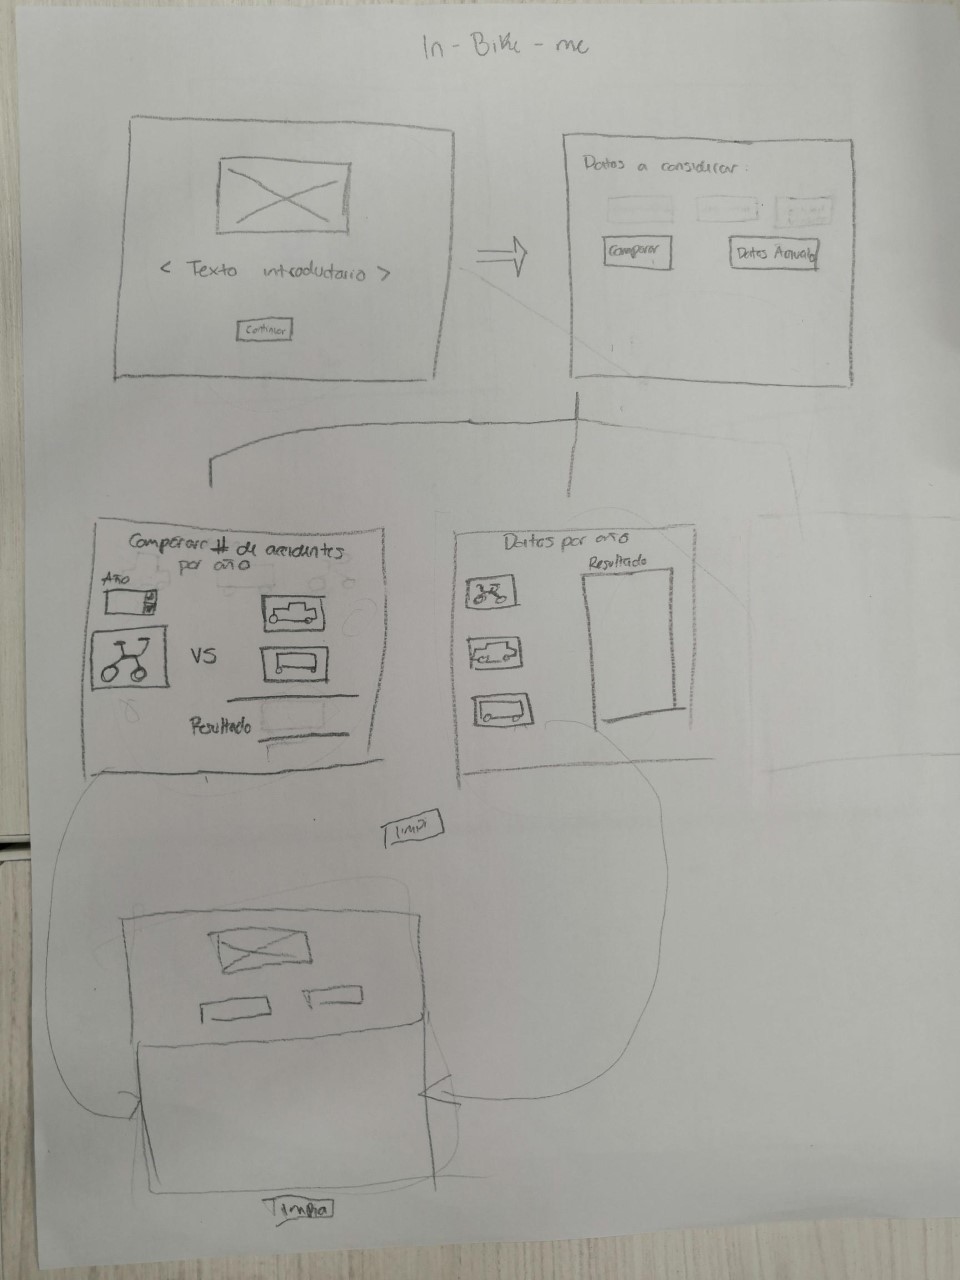 In - Bike - me
< Texto introductorio >
Continuar
Datos a considerar:
Comparar
Datos Anuales
Comparar # de accidentes
por año
Año
VS
Resultado
Datos por año
Resultado
Limpia